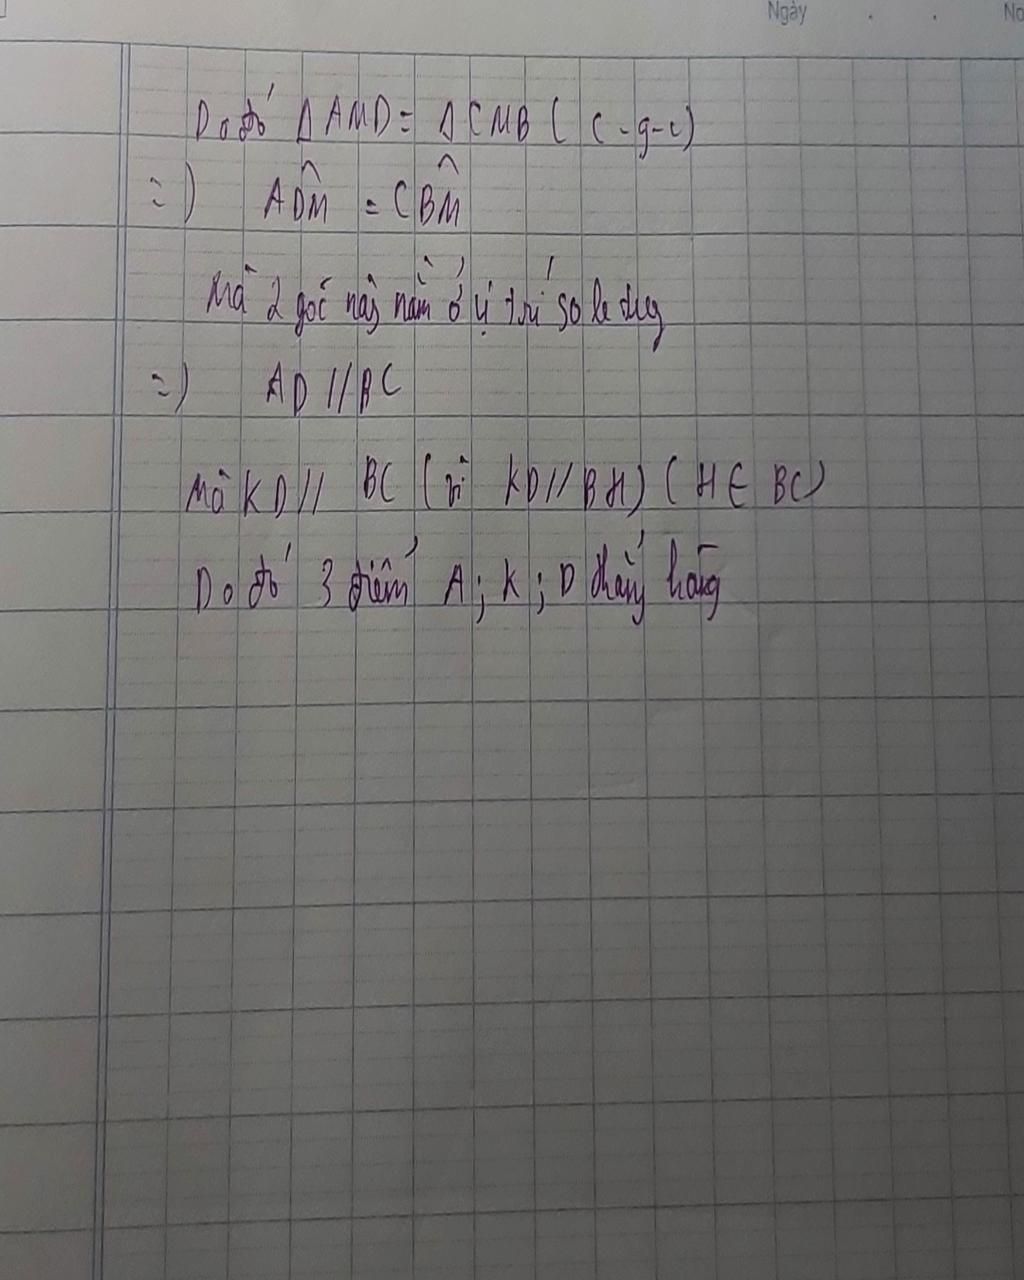 Ngày . . No
Do đó Δ AMD = Δ CMB ( c-g-c)
=) ADM̂ = CBM̂
Mà 2 góc này nằm ở vị trí so le trg
=) AD // BC
Mà KD // BC (vì KD // BH) ( H ∈ BC)
Do đó 3 điểm A; K; D thẳng hàng